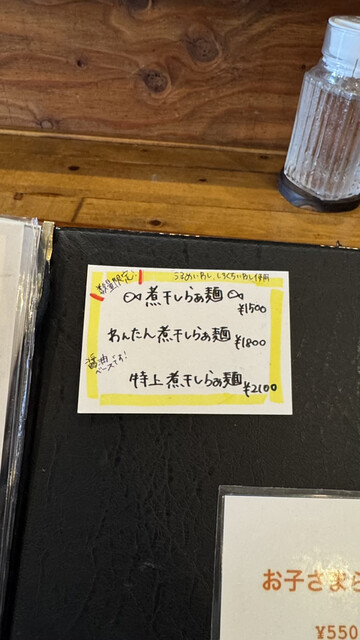 数量限定!
うるめいわし、しろくちいわし使用
煮干しらぁ麺
¥1500
わんたん煮干しらぁ麺 ¥1800
醤油
ベースです!
特上煮干しらぁ麺 ¥2100
お子さまら
¥550